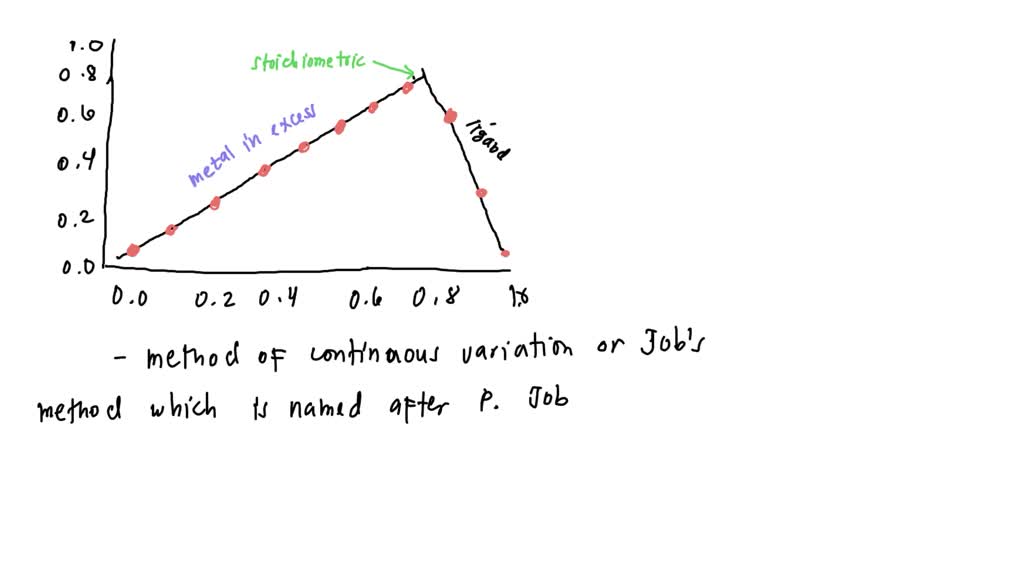 1.0
stoichiometric
0.8
0.6
metal in excess
ligand
0.4
0.2
0.0
0.0 0.2 0.4 0.6 0.8
- method of continuous variation or Job's
method which is named after P. Job